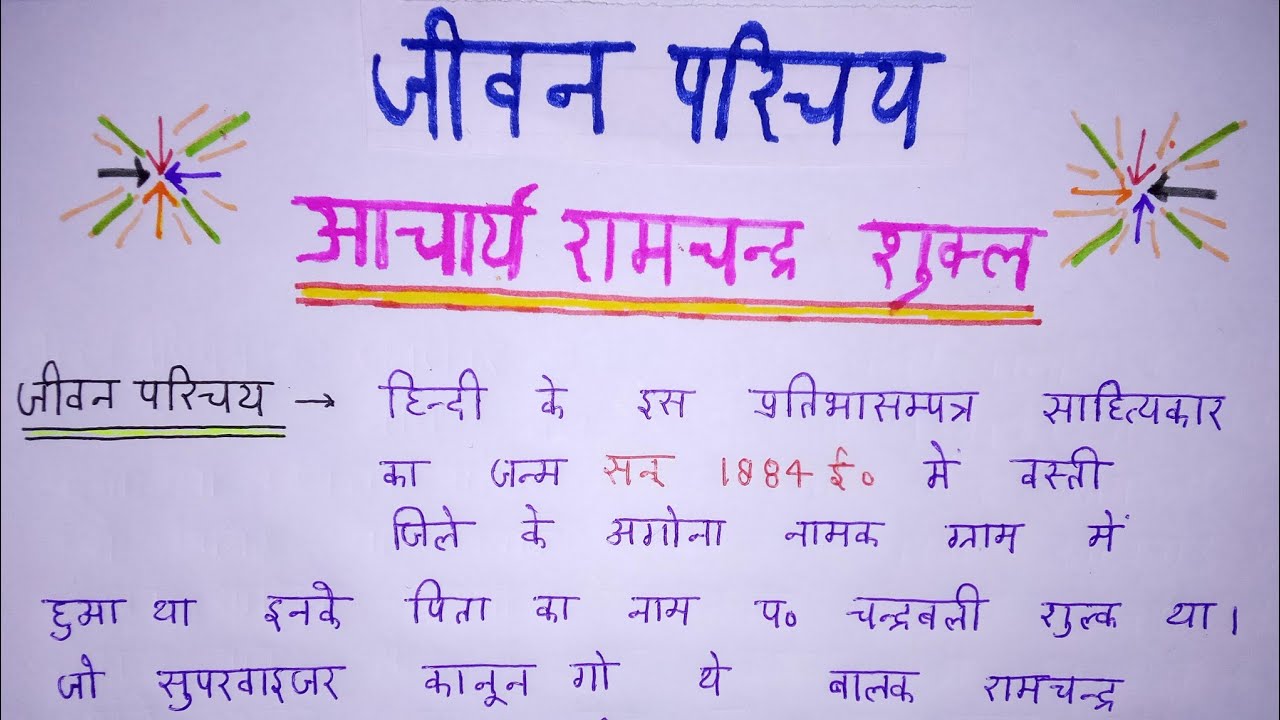 जीवन परिचय
आचार्य रामचन्द्र शुक्ल
जीवन परिचय → हिन्दी के इस प्रतिभासम्पत्र साहित्यकार
का जन्म सन् 1884 ई० में वस्ती
जिले के अगोना नामक ग्राम में
हुआ था इनके पिता का नाम प० चन्द्रबली शुल्क था।
जो सुपरवाइजर कानून गो थे बालक रामचन्द्र